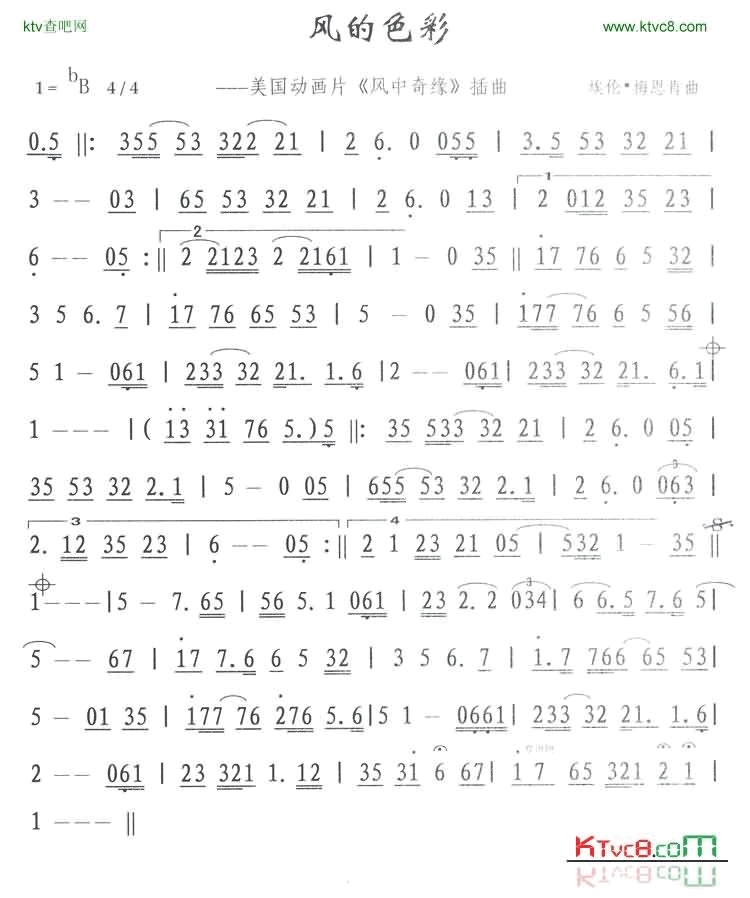 ktv查吧网
风的色彩
www.ktvc8.com
1= bB 4/4 ——美国动画片《风中奇缘》插曲 埃伦·梅恩肯曲
0.5 ||: 355 53 322 21 | 2 6. 0 055 | 3.5 53 32 21 |
3 -- 03 | 65 53 32 21 | 2 6. 0 13 | 1 2 012 35 23 |
6 -- 05 :|| 2 2 2123 2 2161 | 1 - 0 35 || 17 76 6 5 32 |
3 5 6. 7 | 17 76 65 53 | 5 - 0 35 | 177 76 6 5 56 |
5 1 - 061 | 233 32 21. 1.6 | 2 -- 061 | 233 32 21. 6.1 |
1 --- | ( 13 31 76 5. ) 5 ||: 35 533 32 21 | 2 6. 0 05 |
35 53 32 2.1 | 5 - 0 05 | 655 53 32 2.1 | 2 6. 0 3 063 |
3 2. 12 35 23 | 6 -- 05 :|| 4 2 1 23 21 05 | 532 1 - 35 ||
1 --- | 5 - 7. 65 | 56 5. 1 061 | 23 2. 2 3 034 | 6 6.5 7.6 5 |
5 -- 67 | 17 7.6 6 5 32 | 3 5 6. 7 | 1.7 766 65 53 |
5 - 01 35 | 177 76 276 5.6 | 5 1 - 0661 | 233 32 21. 1.6 |
2 -- 061 | 23 321 1. 12 | 35 31 6 67 | 1 7 65 321 2 1 |
1 --- ||
KTvc8.com